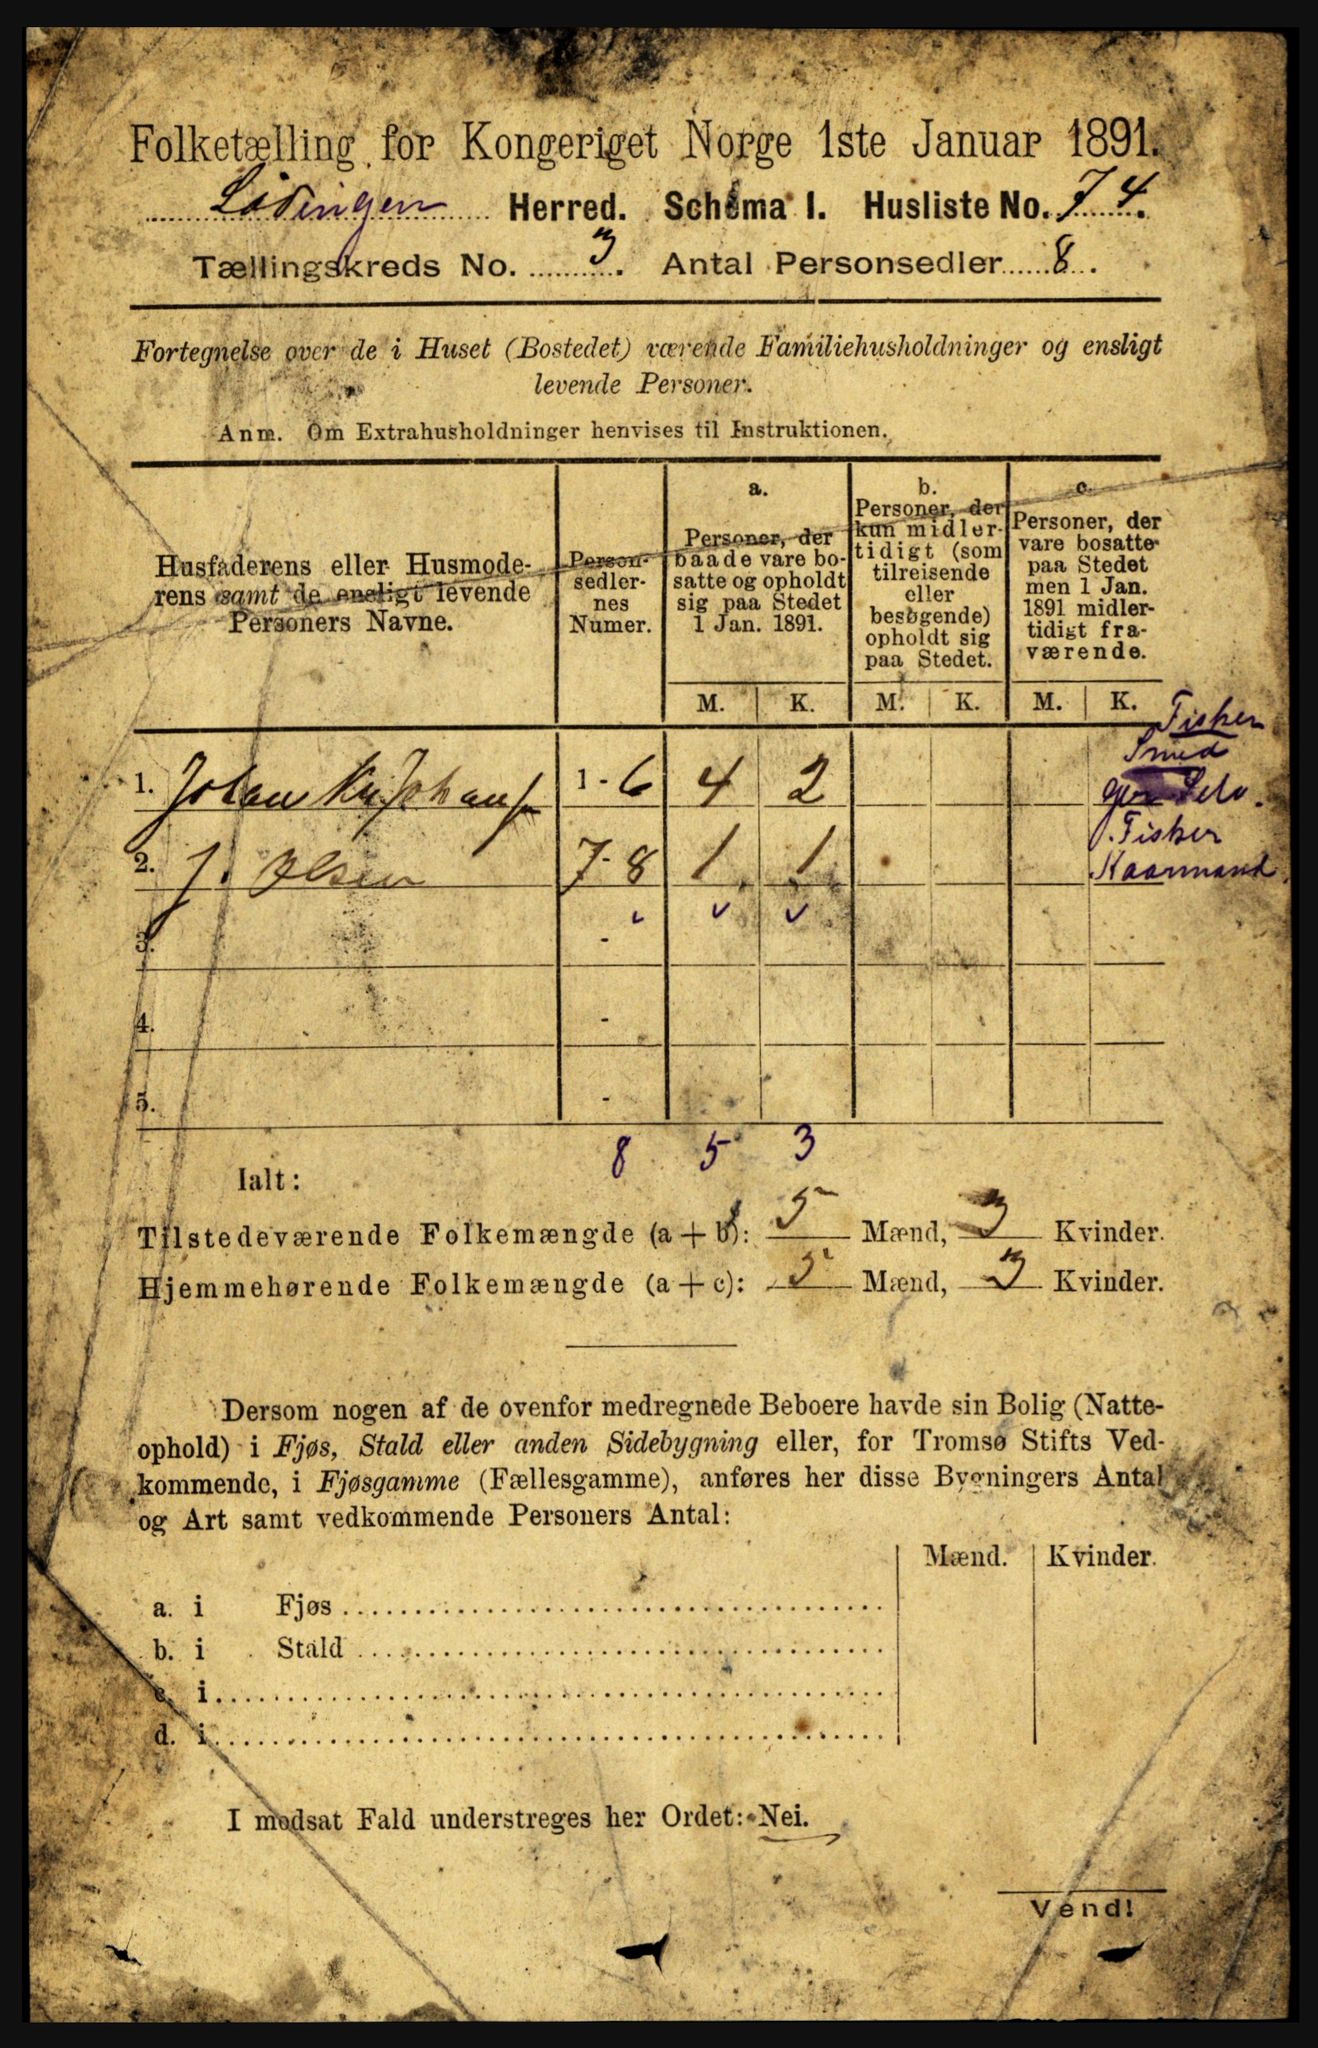 Folketælling for Kongeriget Norge 1ste Januar 1891.
Lødingen Herred. Schema I. Husliste No. 74.
Tællingskreds No. 3. Antal Personsedler 8.
Fortegnelse over de i Huset (Bostedet) værende Familiehusholdninger og ensligt
levende Personer.
Anm. Om Extrahusholdninger henvises til Instruktionen.
Husfaderens eller Husmode-
rens samt de ensligt levende
Personers Navne.
Person-
sedler-
nes
Numer.
a.
Personer, der
baade vare bo-
satte og opholdt
sig paa Stedet
1 Jan. 1891.
b.
Personer, der
kun midler-
tidigt (som
tilreisende
eller
besøgende)
opholdt sig
paa Stedet.
c.
Personer, der
vare bosatte
paa Stedet
men 1 Jan.
1891 midler-
tidigt fra-
værende.
M. K. M. K. M. K.
Fisker
Smed
1. Johan 1 - 6 4 2 Selv.
Fisker
2. J. Olsen 7 - 8 1 1 Kaarmand
3. -
4. -
5. -
8 5 3
Ialt:
Tilstedeværende Folkemængde (a + b): 5 Mænd, 3 Kvinder.
Hjemmehørende Folkemængde (a + c): 5 Mænd, 3 Kvinder.
Dersom nogen af de ovenfor medregnede Beboere havde sin Bolig (Natte-
ophold) i Fjøs, Stald eller anden Sidebygning eller, for Tromsø Stifts Ved-
kommende, i Fjøsgamme (Fællesgamme), anføres her disse Bygningers Antal
og Art samt vedkommende Personers Antal:
Mænd. Kvinder.
a. i Fjøs
b. i Stald
c. i
d. i
I modsat Fald understreges her Ordet: Nei.
Vend!